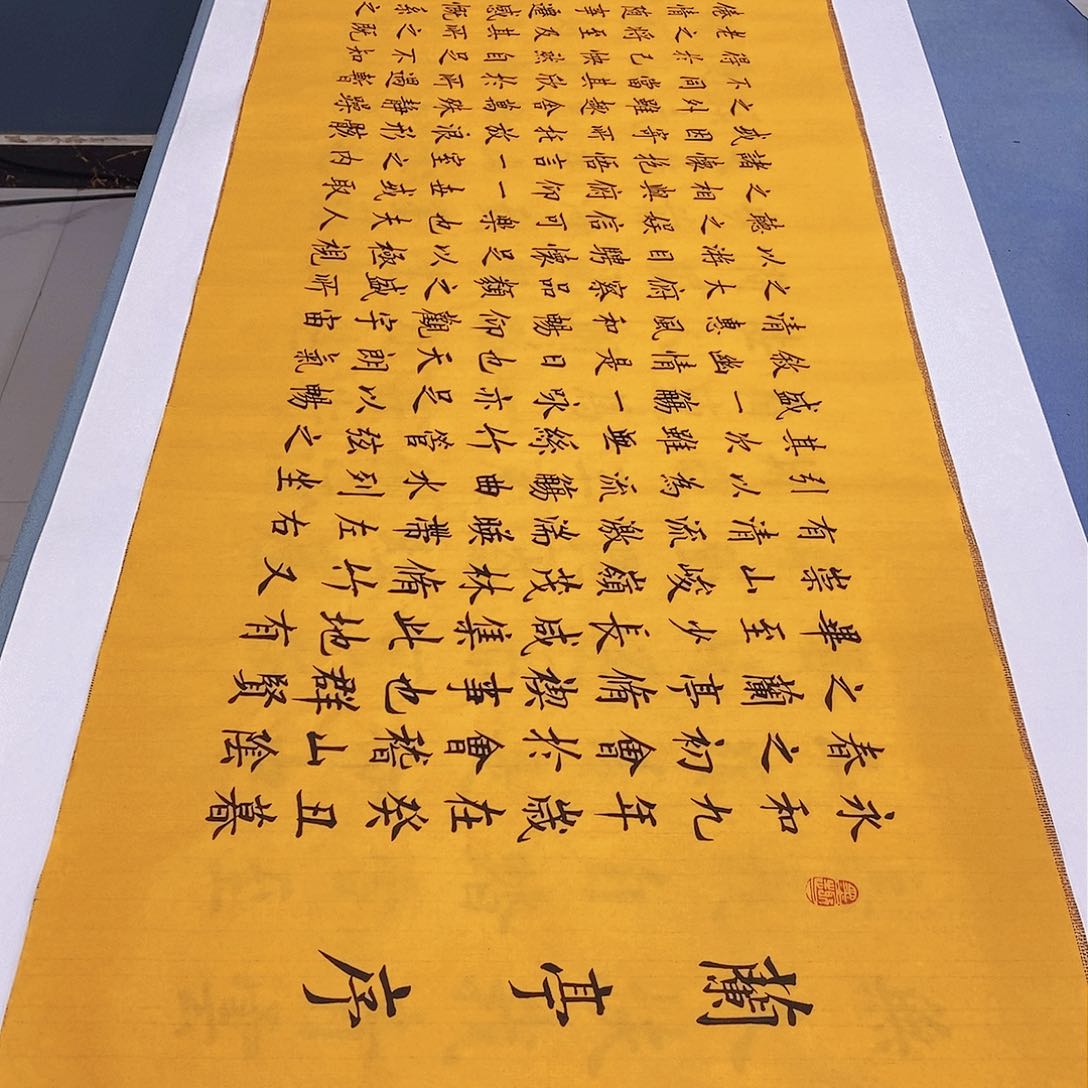 蘭亭序
永和九年歲在癸丑暮
春之初會於會稽山陰
之蘭亭脩禊事也群賢
畢至少長咸集此地有
崇山峻嶺茂林脩竹又
有清流激湍暎帶左右
引以為流觴曲水列坐
其次雖無絲竹管弦之
盛一觴一咏亦足以暢
敘幽情是日也天朗氣
清惠風和暢仰觀宇宙
之大俯察品類之盛所
以游目騁懷足以極視
聽之娛信可樂也夫人
之相與俯仰一世或取
諸懷抱悟言一室之內
或因寄所托放浪形骸
之外雖趣舍萬殊靜躁
不同當其欣於所遇暫
得於己快然自足不知
老之將至及其所之既
倦情隨事遷感慨系之